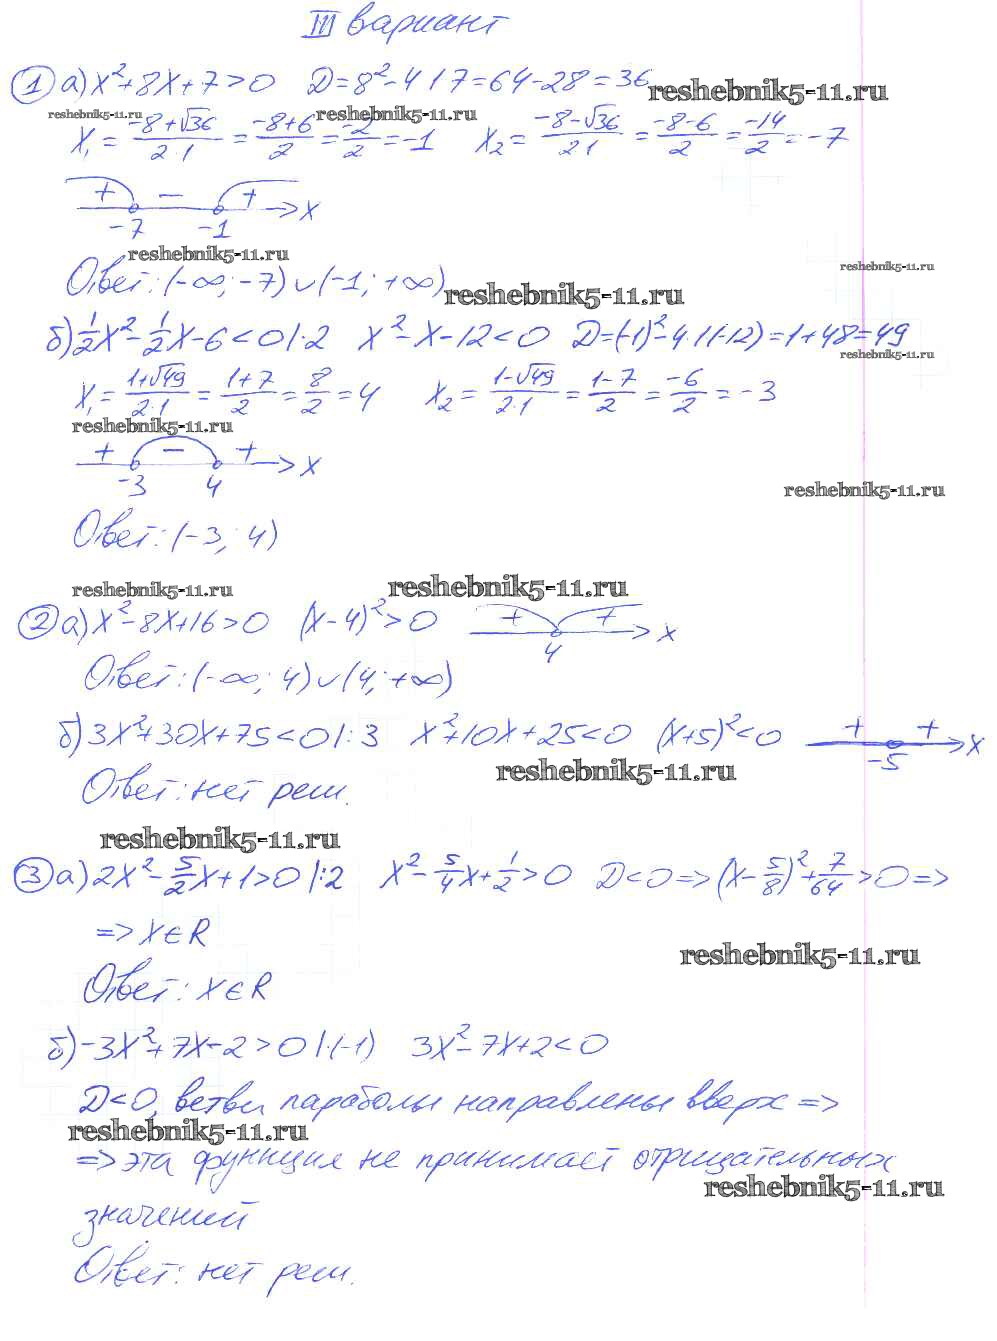 III вариант
① а) x²+8x+7>0 D=8²-4·1·7=64-28=36 reshebnik5-11.ru
reshebnik5-11.ru reshebnik5-11.ru
x₁ = (-8+√36)/(2·1) = (-8+6)/2 = -2/2 = -1 x₂ = (-8-√36)/(2·1) = (-8-6)/2 = -14/2 = -7
+ − + x
-7 -1
reshebnik5-11.ru
reshebnik5-11.ru
Ответ: (-∞; -7) ∪ (-1; +∞) reshebnik5-11.ru
б) 1/2x² - 1/2x - 6 < 0 |·2 x²-x-12<0 D=(-1)²-4·1·(-12)=1+48=49
reshebnik5-11.ru
x₁ = (1+√49)/(2·1) = (1+7)/2 = 8/2 = 4 x₂ = (1-√49)/(2·1) = (1-7)/2 = -6/2 = -3
reshebnik5-11.ru
+ − + x
-3 4
reshebnik5-11.ru
Ответ: (-3; 4)
reshebnik5-11.ru reshebnik5-11.ru
② а) x²-8x+16>0 (x-4)²>0 + + x
4
Ответ: (-∞; 4) ∪ (4; +∞)
б) 3x²+30x+75<0 |:3 x²+10x+25<0 (x+5)²<0 + + x
-5
reshebnik5-11.ru
Ответ: нет реш.
reshebnik5-11.ru
③ а) 2x² - 5/2x + 1 > 0 |:2 x² - 5/4x + 1/2 > 0 D<0 => (x - 5/8)² + 7/64 > 0 =>
=> x∈R
reshebnik5-11.ru
Ответ: x∈R
б) -3x²+7x-2>0 |·(-1) 3x²-7x+2<0
D<0, ветви параболы направлены вверх =>
reshebnik5-11.ru
=> эта функция не принимает отрицательных
reshebnik5-11.ru
значений
Ответ: нет реш.